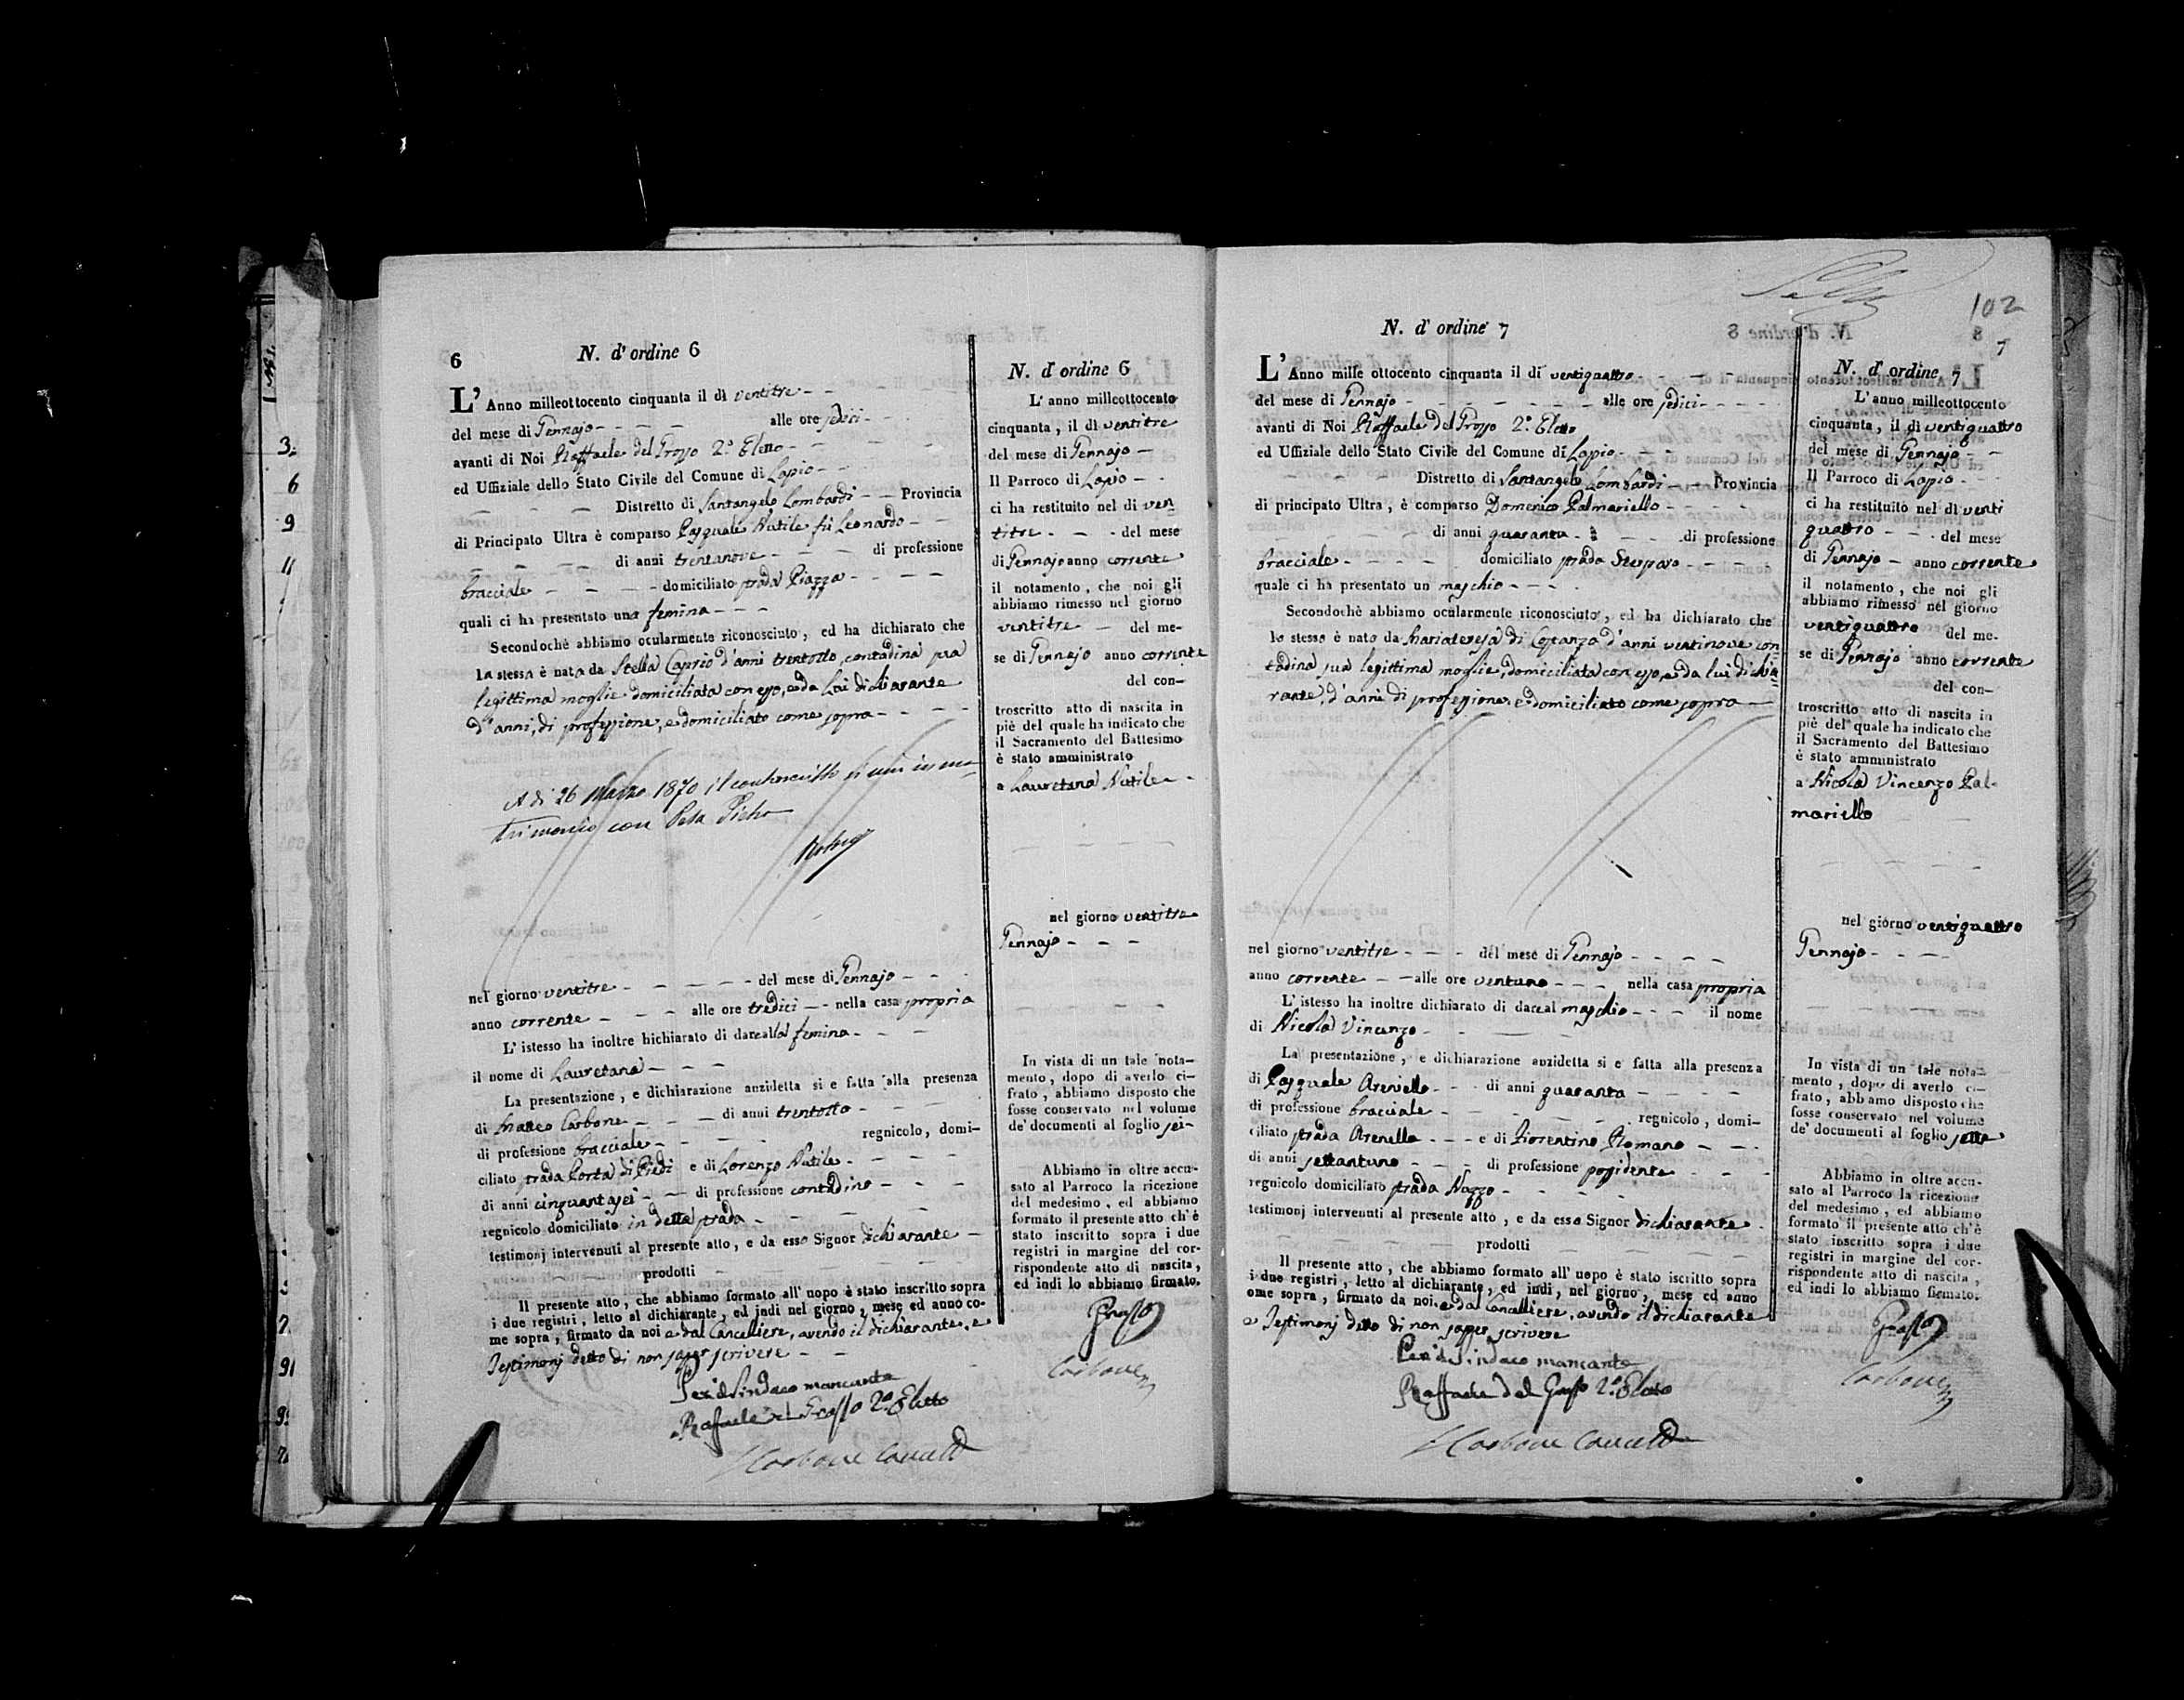 6
N. d' ordine 6
L' Anno milleottocento cinquanta il dì ventitre
del mese di Gennajo alle ore sedici
avanti di Noi Raffaele del Grosso 2.° Eletto
ed Uffiziale dello Stato Civile del Comune di Lapio
Distretto di Santangelo Lombardi Provincia
di Principato Ultra è comparso Pasquale Nutile fù Leonardo
di anni trentanove di professione
bracciale domiciliato strada Piazza
quali ci ha presentato una femina
Secondochè abbiamo ocularmente riconosciuto, ed ha dichiarato che
la stessa è nata da Stella Caprio d'anni trentotto, contadina sua
legittima moglie domiciliata con esso, e da lui dichiarante
d'anni, di professione, e domiciliato come sopra
A dì 26 Marzo 1870 il controscritto si unì in ma-
trimonio con
nel giorno ventitre del mese di Gennajo
anno corrente alle ore tredici nella casa propria
L' istesso ha inoltre hichiarato di dare alla femina
il nome di Lauretana
La presentazione, e dichiarazione anzidetta si e fatta alla presenza
di Matteo Carbone di anni trentotto
di professione bracciale regnicolo, domi-
ciliato strada Porta di Piedi e di Lorenzo Nutile
di anni cinquantasei di professione contadino
regnicolo domiciliato in detta strada
testimonj intervenuti al presente atto, e da esso Signor dichiarante
prodotti
Il presente atto, che abbiamo formato all' uopo è stato inscritto sopra
i due registri, letto al dichiarante, ed indi nel giorno, mese ed anno co-
me sopra, firmato da noi e dal Cancelliere, avendo il dichiarante, e
Testimonj detto di non saper scrivere
Per il Sindaco mancante
Raffaele del Grosso 2.° Eletto
Carbone Cancell
N. d' ordine 6
L' anno milleottocento
cinquanta, il dì ventitre
del mese di Gennajo
Il Parroco di Lapio
ci ha restituito nel dì ven-
titre del mese
di Gennajo anno corrente
il notamento, che noi gli
abbiamo rimesso nel giorno
ventitre del me-
se di Gennajo anno corrente
del con-
troscritto atto di nascita in
piè del quale ha indicato che
il Sacramento del Battesimo
è stato amministrato
a Lauretana Nutile
nel giorno ventitre
Gennajo
In vista di un tale nota-
mento, dopo di averlo ci-
frato, abbiamo disposto che
fosse conservato nel volume
de' documenti al foglio sei
Abbiamo in oltre accu-
sato al Parroco la ricezione
del medesimo, ed abbiamo
formato il presente atto ch' è
stato inscritto sopra i due
registri in margine del cor-
rispondente atto di nascita,
ed indi lo abbiamo firmato.
Grosso
Carbone
102
7
N. d' ordine 7
L' Anno mille ottocento cinquanta il dì ventiquattro
del mese di Gennajo alle ore sedici
avanti di Noi Raffaele del Grosso 2.° Eletto
ed Uffiziale dello Stato Civile del Comune di Lapio
Distretto di Santangelo Lombardi Provincia
di principato Ultra, è comparso Domenico Palmariello
di anni quaranta di professione
bracciale domiciliato strada
quale ci ha presentato un maschio
Secondochè abbiamo ocularmente riconosciuto, ed ha dichiarato che
lo stesso è nato da Mariateresa di Costanzo d'anni ventinove con-
tadina sua legittima moglie, domiciliata con esso, e da lui dichia-
rante, d'anni di professione, e domiciliato come sopra
nel giorno ventitre del mese di Gennajo
anno corrente alle ore ventuno nella casa propria
L' istesso ha inoltre dichiarato di dare al maschio il nome
di Nicola Vincenzo
La presentazione, e dichiarazione anzidetta si e fatta alla presenza
di Pasquale Areniello di anni quaranta
di professione bracciale regnicolo, domi-
ciliato strada Arenella e di Fiorentino Romano
di anni settantuno di professione possidente
regnicolo domiciliato strada Nazzo
testimonj intervenuti al presente atto, e da esso Signor dichiarante
prodotti
Il presente atto, che abbiamo formato all' uopo è stato iscritto sopra
i due registri, letto al dichiarante, ed indi, nel giorno, mese ed anno
ome sopra, firmato da noi, e dal Cancelliere, avendo il dichiarante
e Testimonj detto di non saper scrivere
Per il Sindaco mancante
Raffaele del Grosso 2.° Eletto
Carbone Cancell
N. d' ordine 7
L' anno milleottocento
cinquanta, il dì ventiquattro
del mese di Gennajo
Il Parroco di Lapio
ci ha restituito nel dì venti
quattro del mese
di Gennajo anno corrente
il notamento, che noi gli
abbiamo rimesso nel giorno
ventiquattro del me-
se di Gennajo anno corrente
del con-
troscritto atto di nascita in
piè del quale ha indicato che
il Sacramento del Battesimo
è stato amministrato
a Nicola Vincenzo Pal-
mariello
nel giorno ventiquattro
Gennajo
In vista di un tale nota-
mento, dopo di averlo ci-
frato, abbiamo disposto che
fosse conservato nel volume
de' documenti al foglio sette
Abbiamo in oltre accu-
sato al Parroco la ricezione
del medesimo, ed abbiamo
formato il presente atto ch' è
stato inscritto sopra i due
registri in margine del cor-
rispondente atto di nascita,
ed indi lo abbiamo firmato.
Grosso
Carbone